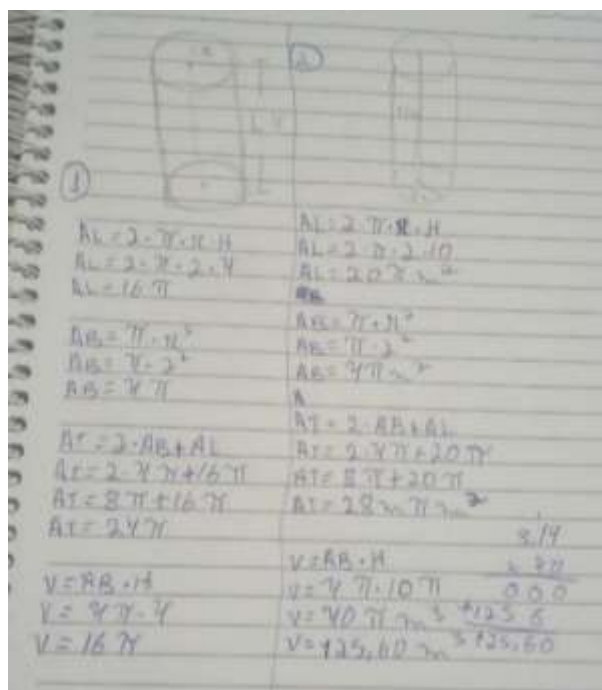 2
1
AL = 2 · π · r · H
AL = 2 · π · 2 · 4
AL = 16 π
AB = π · r²
AB = π · 2²
AB = 4 π
AT = 2 · AB + AL
AT = 2 · 4 π + 16 π
AT = 8 π + 16 π
AT = 24 π
V = AB · H
V = 4 π · 4
V = 16 π
AL = 2 · π · r · H
AL = 2 · π · 2 · 10
AL = 20 π m²
AB = π · r²
AB = π · 2²
AB = 4 π m²
A
AT = 2 · AB + AL
AT = 2 · 4 π + 20 π
AT = 8 π + 20 π
AT = 28 m π m²
V = AB · H
V = 4 π · 10 π
V = 40 π m³
V = 125,60 m³
3,14
x 40
000
+125 6
125,60